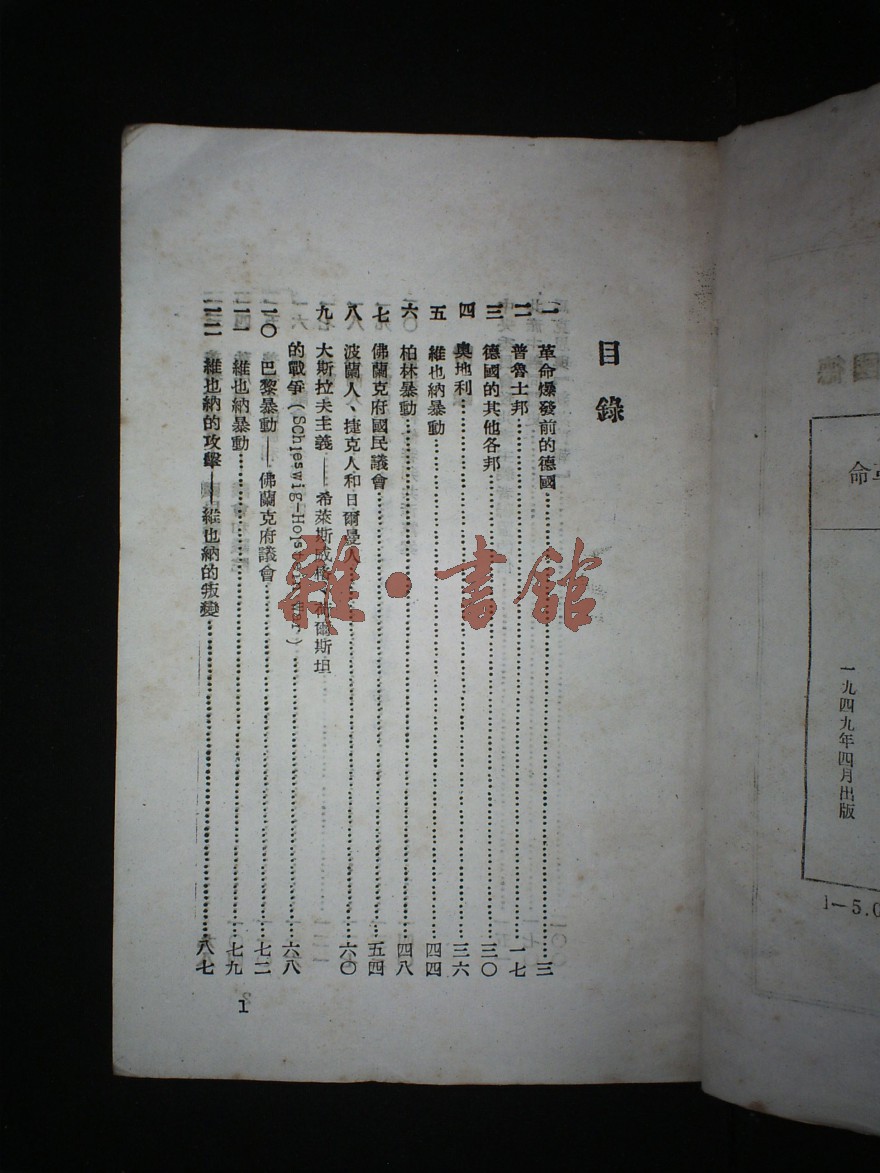 目錄
一 革命爆發前的德國 三
二 普魯士邦 一七
三 德國的其他各邦 三〇
四 奧地利 三六
五 維也納暴動 四四
六 柏林暴動 四八
七 佛蘭克府國民議會 五四
八 波蘭人、捷克人和日爾曼人 六〇
九 大斯拉夫主義——希萊斯威格、荷爾斯坦
的戰爭(Schjeswig-Hojstein War) 六八
一〇 巴黎暴動——佛蘭克府議會 七二
一一 維也納暴動 七九
一二 維也納的攻擊——維也納的叛變 八七
1
雜·書館
國德
命
一九四九年四月出版
1—5.0